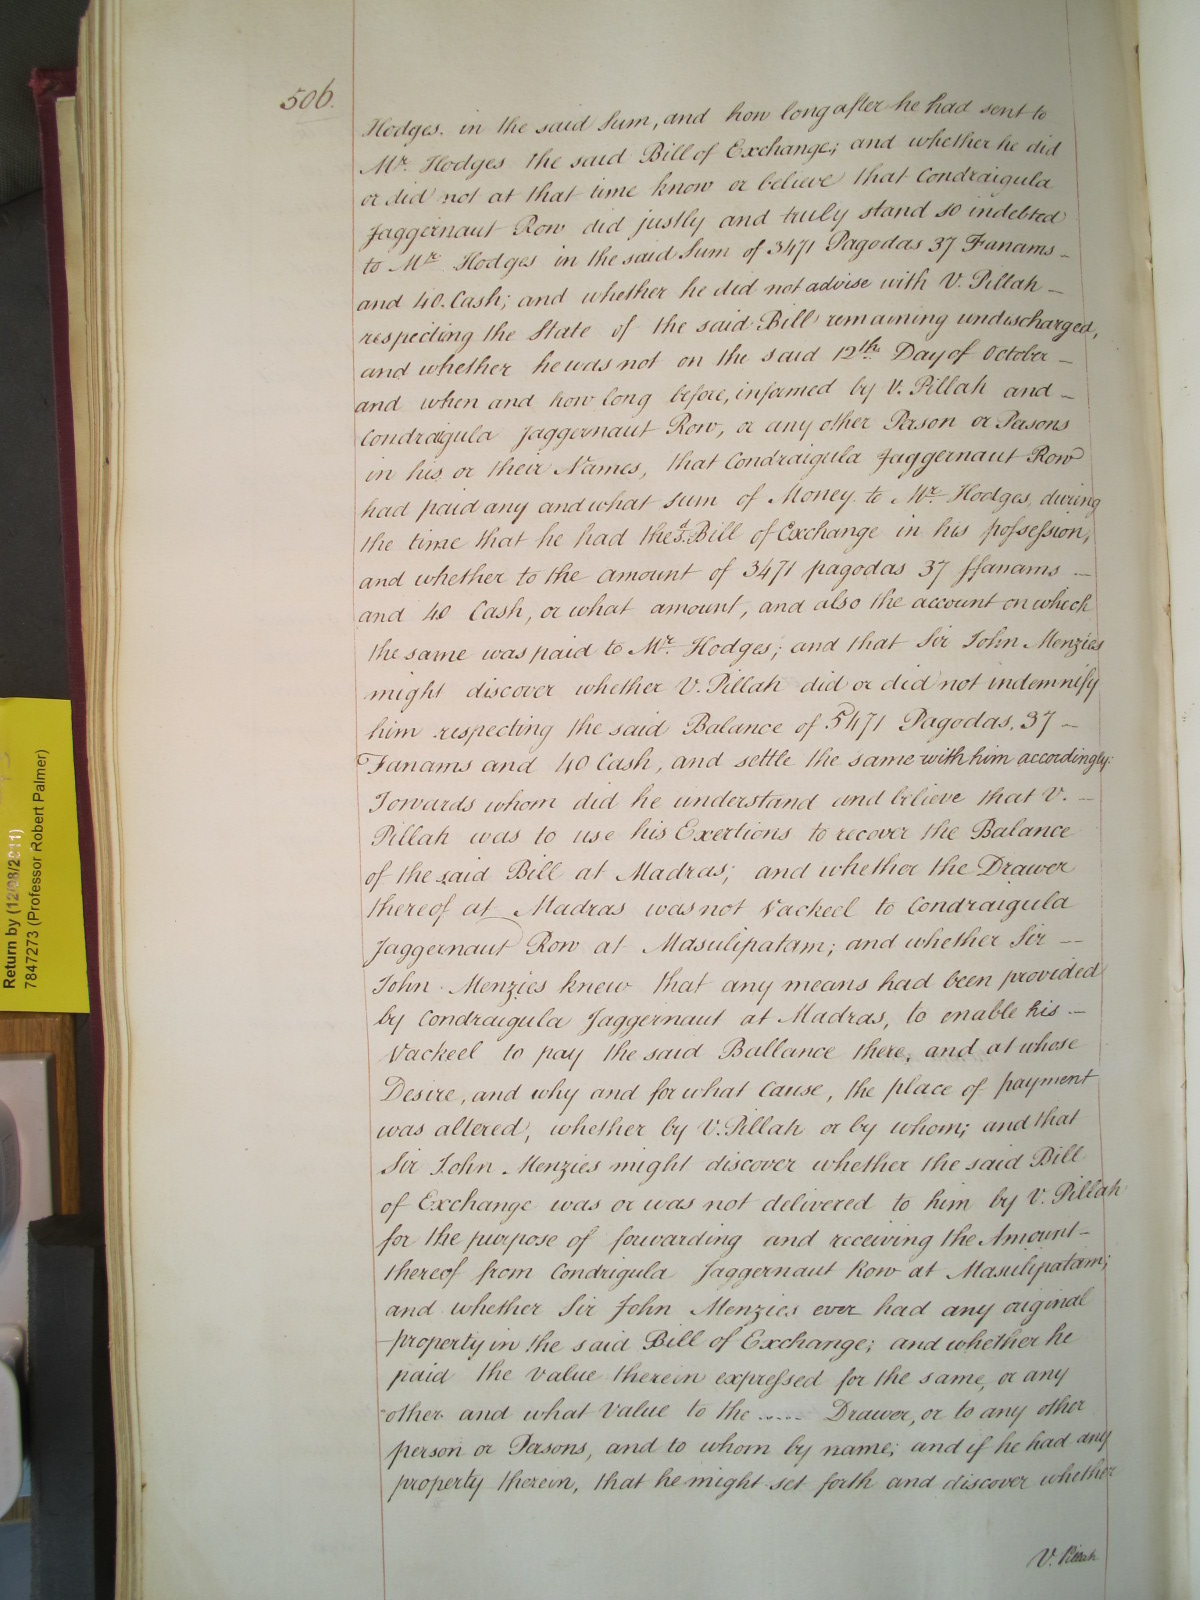 506.
Hodges. in the said Sum, and how long after he had sent to
Mr. Hodges the said Bill of Exchange; and whether he did
or did not at that time know or believe that Condraigula
Jaggernaut Row did justly and truly stand so indebted
to Mr. Hodges in the said Sum of 3471 Pagodas 37 Fanams _
and 40. Cash; and whether he did not advise with V. Pillah _
respecting the State of the said Bill remaining undischarged,
and whether he was not on the said 12th. Day of October _
and when and how long before, informed by V. Pillah and _
Condraigula Jaggernaut Row, or any other Person or Pasons
in his or their Names, that Condraigula Jaggernaut Row
had paid any and what sum of Money to Mr. Hodges, during
the time that he had the sd. Bill of Exchange in his possession,
and whether to the amount of 3471 pagodas 37 ffanams _
and 40 Cash, or what amount, and also the account on which
the same was paid to Mr. Hodges; and that Sir John Menzies
might discover whether V. Pillah did or did not indemnify
him respecting the said Balance of 5471 Pagodas. 37 _
Fanams and 40 Cash, and settle the same with him accordingly:
Towards whom did he understand and believe that V. _
Pillah was to use his Exertions to recover the Balance
of the said Bill at Madras; and whether the Drawer
thereof at Madras was not Vackeel to Condraigula
Jaggernaut Row at Masulipatam; and whether Sir _
John Menzies knew that any means had been provided
by Condraigula Jaggernaut at Madras, to enable his _
Vackeel to pay the said Ballance there, and at whose
Desire, and why and for what Cause, the place of payment
was altered, whether by V. Pillah or by whom; and that
Sir John Menzies might discover whether the said Bill
of Exchange was or was not delivered to him by V. Pillah
for the purpose of forwarding and receiving the Amount _
thereof from Condrigula Jaggernaut Row at Masulipatam;
and whether Sir John Menzies ever had any original
property in the said Bill of Exchange; and whether he
paid the value therein expressed for the same, or any
other and what Value to the ..... Drawer, or to any other
person or Persons, and to whom by name; and if he had any
property therein, that he might set forth and discover whether
V. Pillah
Return by (12/08/2011)
7847273 (Professor Robert Palmer)